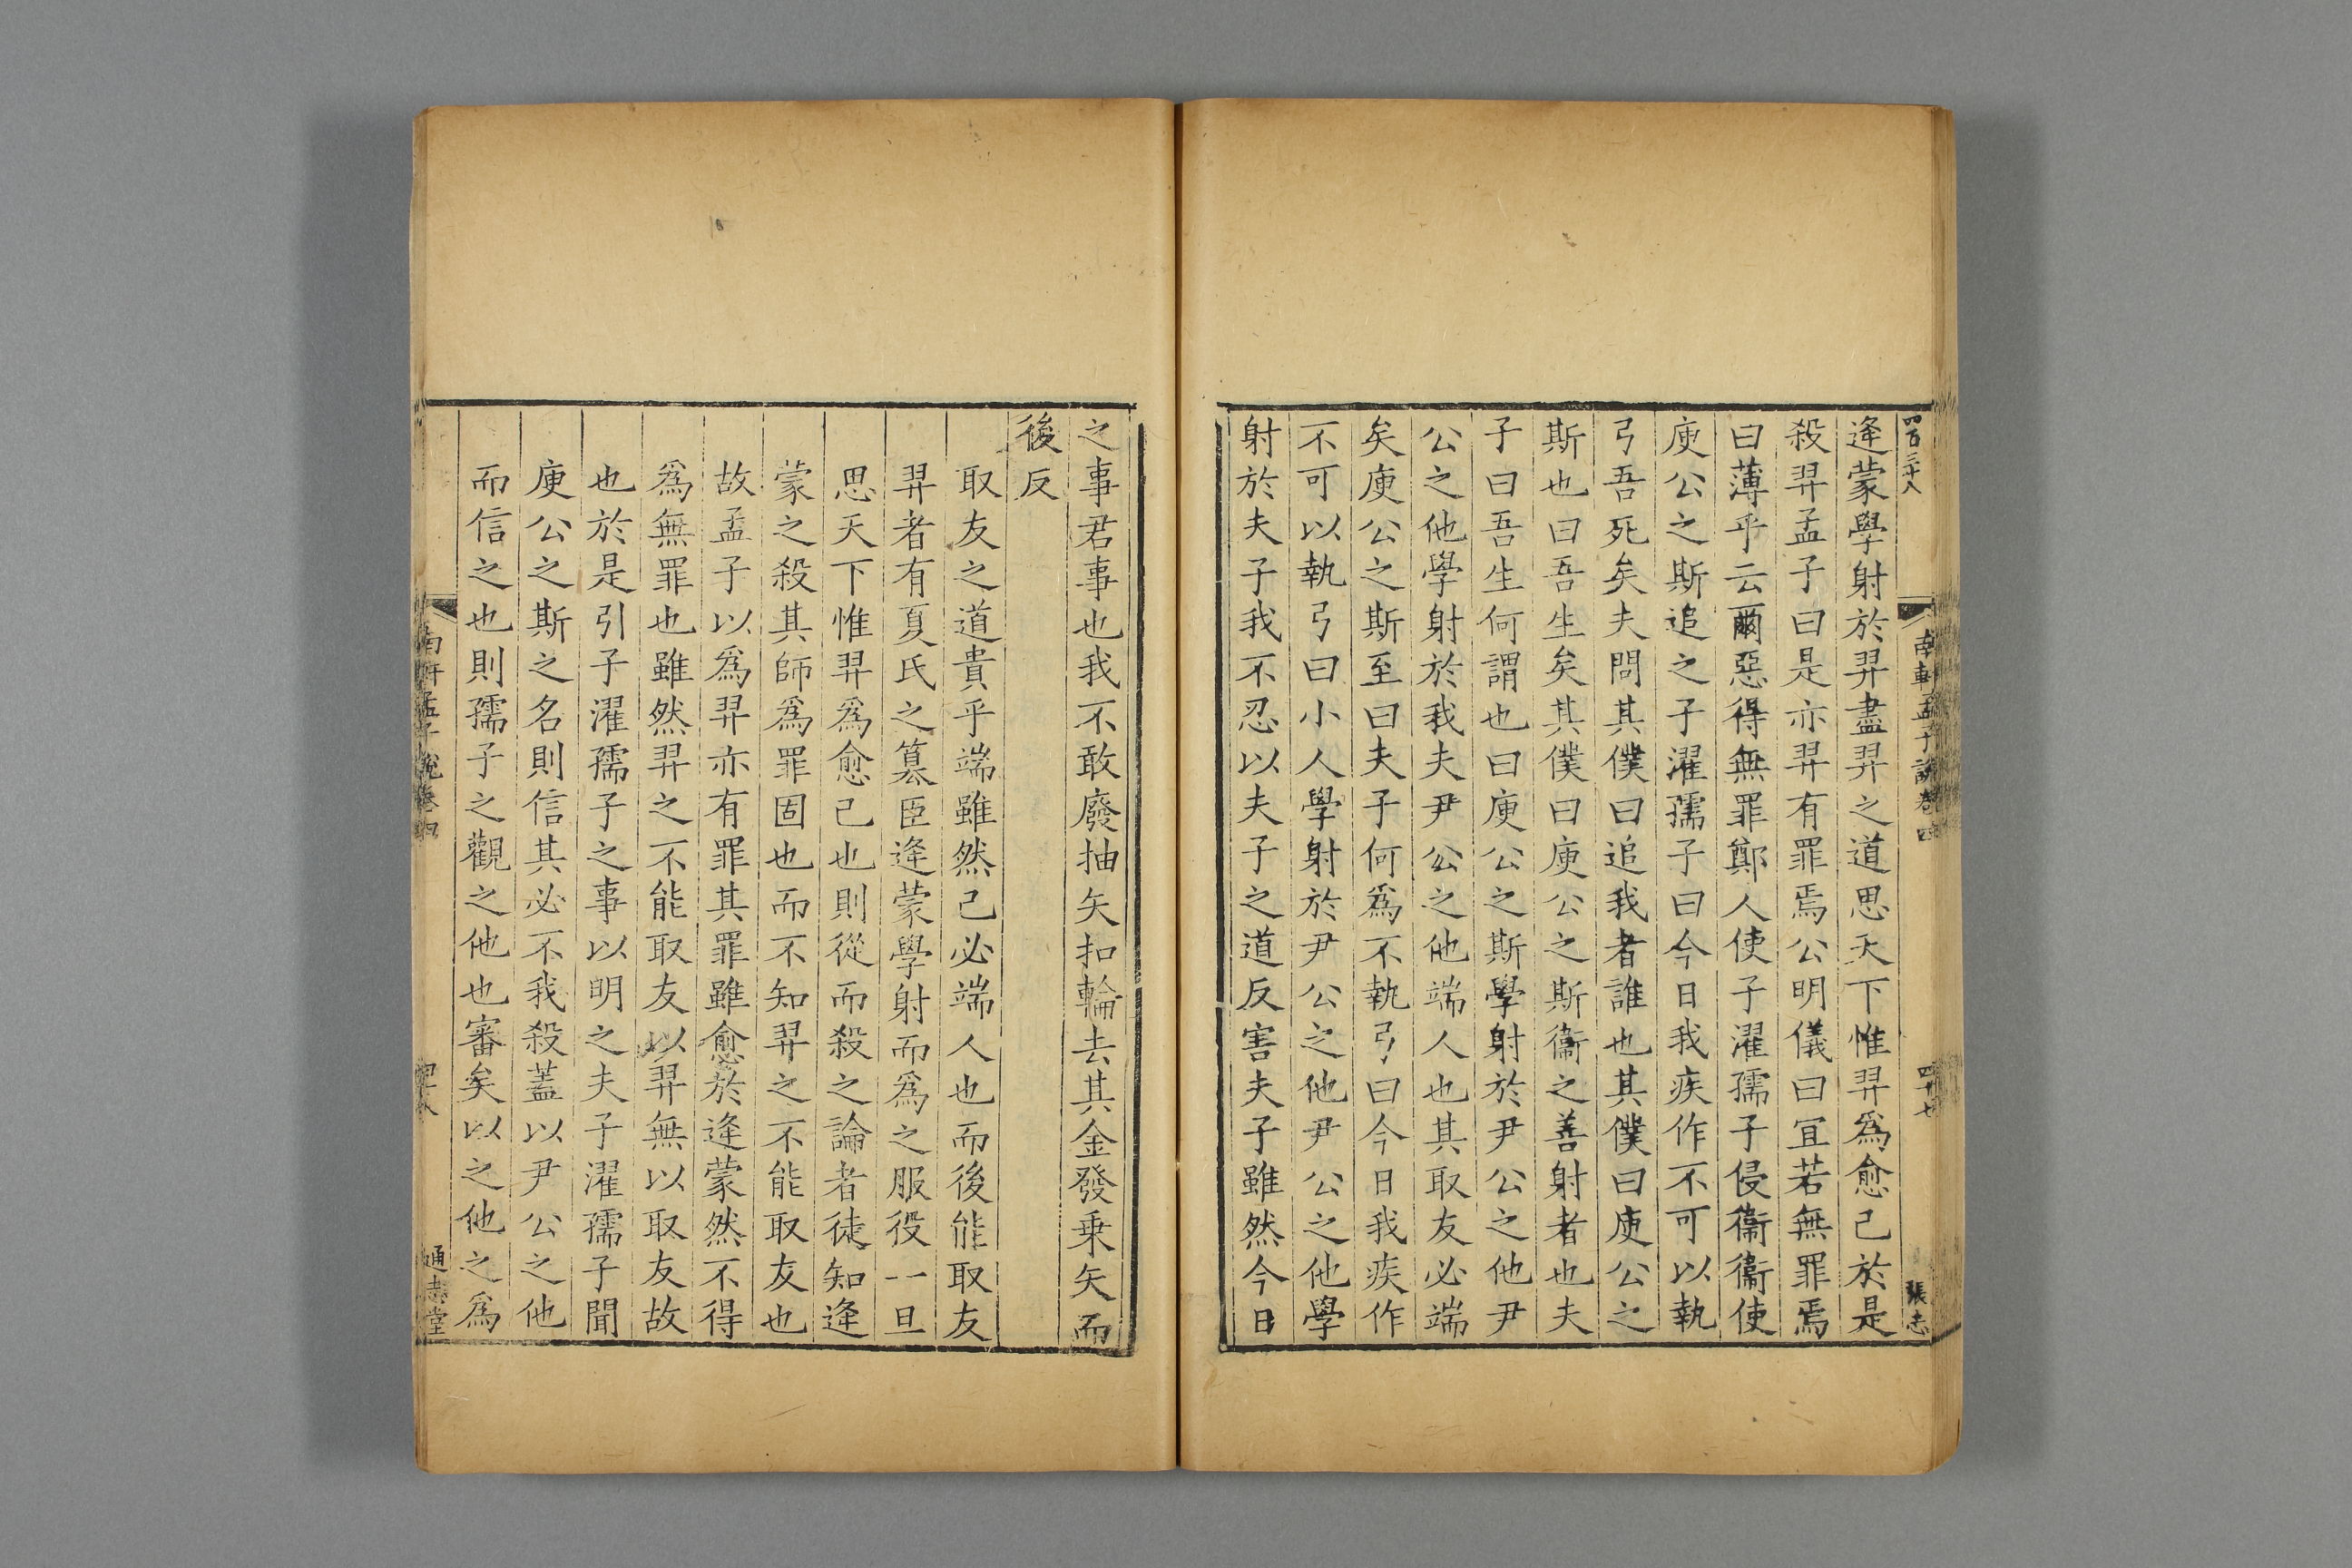 四百三十八
南軒孟子說卷四
四十七
張志
逄蒙學射於羿盡羿之道思天下惟羿爲愈己於是
殺羿孟子曰是亦羿有罪焉公明儀曰宜若無罪焉
曰薄乎云爾惡得無罪鄭人使子濯孺子侵衞衞使
庾公之斯追之子濯孺子曰今日我疾作不可以執
弓吾死矣夫問其僕曰追我者誰也其僕曰庾公之
斯也曰吾生矣其僕曰庾公之斯衞之善射者也夫
子曰吾生何謂也曰庾公之斯學射於尹公之他尹
公之他學射於我夫尹公之他端人也其取友必端
矣庾公之斯至曰夫子何爲不執弓曰今日我疾作
不可以執弓曰小人學射於尹公之他尹公之他學
射於夫子我不忍以夫子之道反害夫子雖然今日
之事君事也我不敢廢抽矢扣輪去其金發乗矢而
後反
取友之道貴乎端雖然己必端人也而後能取友
羿者有夏氏之簒臣逄蒙學射而爲之服役一旦
思天下惟羿爲愈己也則從而殺之論者徒知逄
蒙之殺其師爲罪固也而不知羿之不能取友也
故孟子以爲羿亦有罪其罪雖愈於逄蒙然不得
爲無罪也雖然羿之不能取友以羿無以取友故
也於是引子濯孺子之事以明之夫子濯孺子聞
庾公之斯之名則信其必不我殺蓋以尹公之他
而信之也則孺子之觀之他也審矣以之他之爲
南軒孟子說卷四
四十八
通志堂